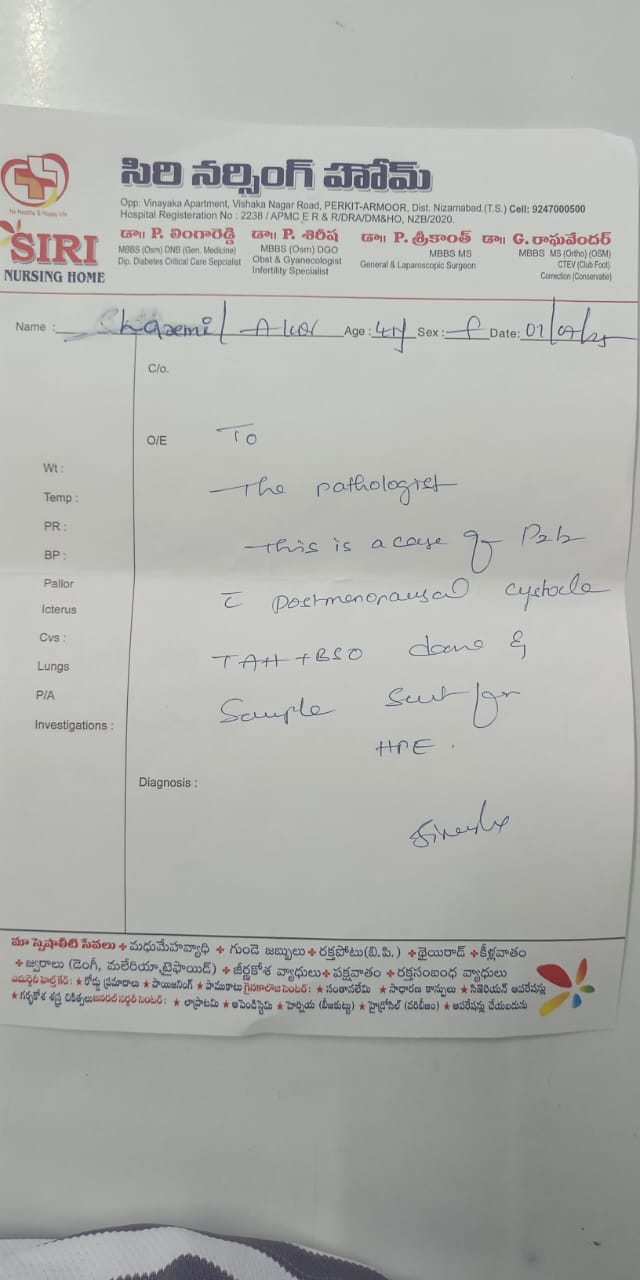 సిరి నర్సింగ్ హోమ్
for Healthy & Happy Life
SIRI
NURSING HOME
Opp: Vinayaka Apartment, Vishaka Nagar Road, PERKIT-ARMOOR, Dist. Nizamabad.(T.S.) Cell: 9247000500
Hospital Registeration No : 2238 / APMC E R & R/DRA/DM&HO, NZB/2020.
డా॥ P. లింగారెడ్డి
MBBS (Osm) DNB (Gen. Medicine)
Dip. Diabetes Critical Care Sepcialist
డా॥ P. శిరీష
MBBS (Osm) DGO
Obst & Gyanecologist
Infertility Specialist
డా॥ P. శ్రీకాంత్
MBBS MS
General & Laparoscopic Surgeon
డా॥ G. రాఘవేందర్
MBBS MS (Ortho) (OSM)
CTEV (Club Foot)
Correction (Conservatie)
Name : Age : Sex : f Date: 01/
C/o.
O/E
To
Wt :
The pathologist
Temp :
PR :
This is a case of P2L2
BP :
Pallor
c̄ postmenopausal cystocele
Icterus
Cvs :
TAH+BSO done &
Lungs
P/A
Sample sent for
Investigations :
HPE.
Diagnosis :
మా స్పెషాలిటీ సేవలు + మధుమేహవ్యాధి + గుండె జబ్బులు + రక్తపోటు(బి.పి.) + థైయిరాడ్ + కీళ్లవాతం
+ జ్వరాలు (డెంగీ, మలేరియా,టైఫాయిడ్) + జీర్ణకోశ వ్యాధులు + పక్షవాతం + రక్తసంబంధ వ్యాధులు
★ రోడ్డు ప్రమాదాలు ★ పాయిజనింగ్ ★ పాముకాటు ★ సంతానలేమి ★ సాధారణ కాన్పులు ★ సిజెరియన్ ఆపరేషన్లు
★ గర్భకోశ శస్త్ర చికిత్సలు ★ లాప్రాటమి ★ అపెండిస్టెమి ★ హెర్నియ (బీజకుట్టు) ★ హైడ్రోసిల్ (వరిబీజం) ★ ఆపరేషన్లు చేయబడును